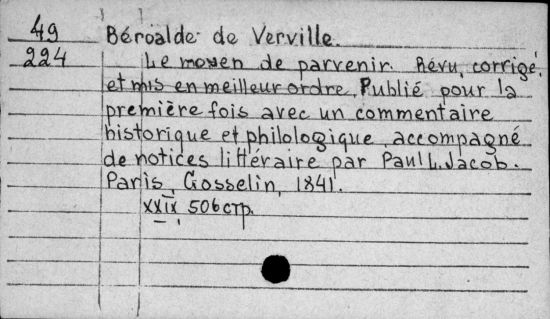 49
224
Béroalde de Verville.
Le moyen de parvenir. Révu, corrigé,
et mis en meilleur ordre, Publié pour la
première fois avec un commentaire
historique et philologique, accompagné
de notices littéraire par Paul L. Jacob.
Paris, Gosselin, 1841.
XXIX, 506 стр.